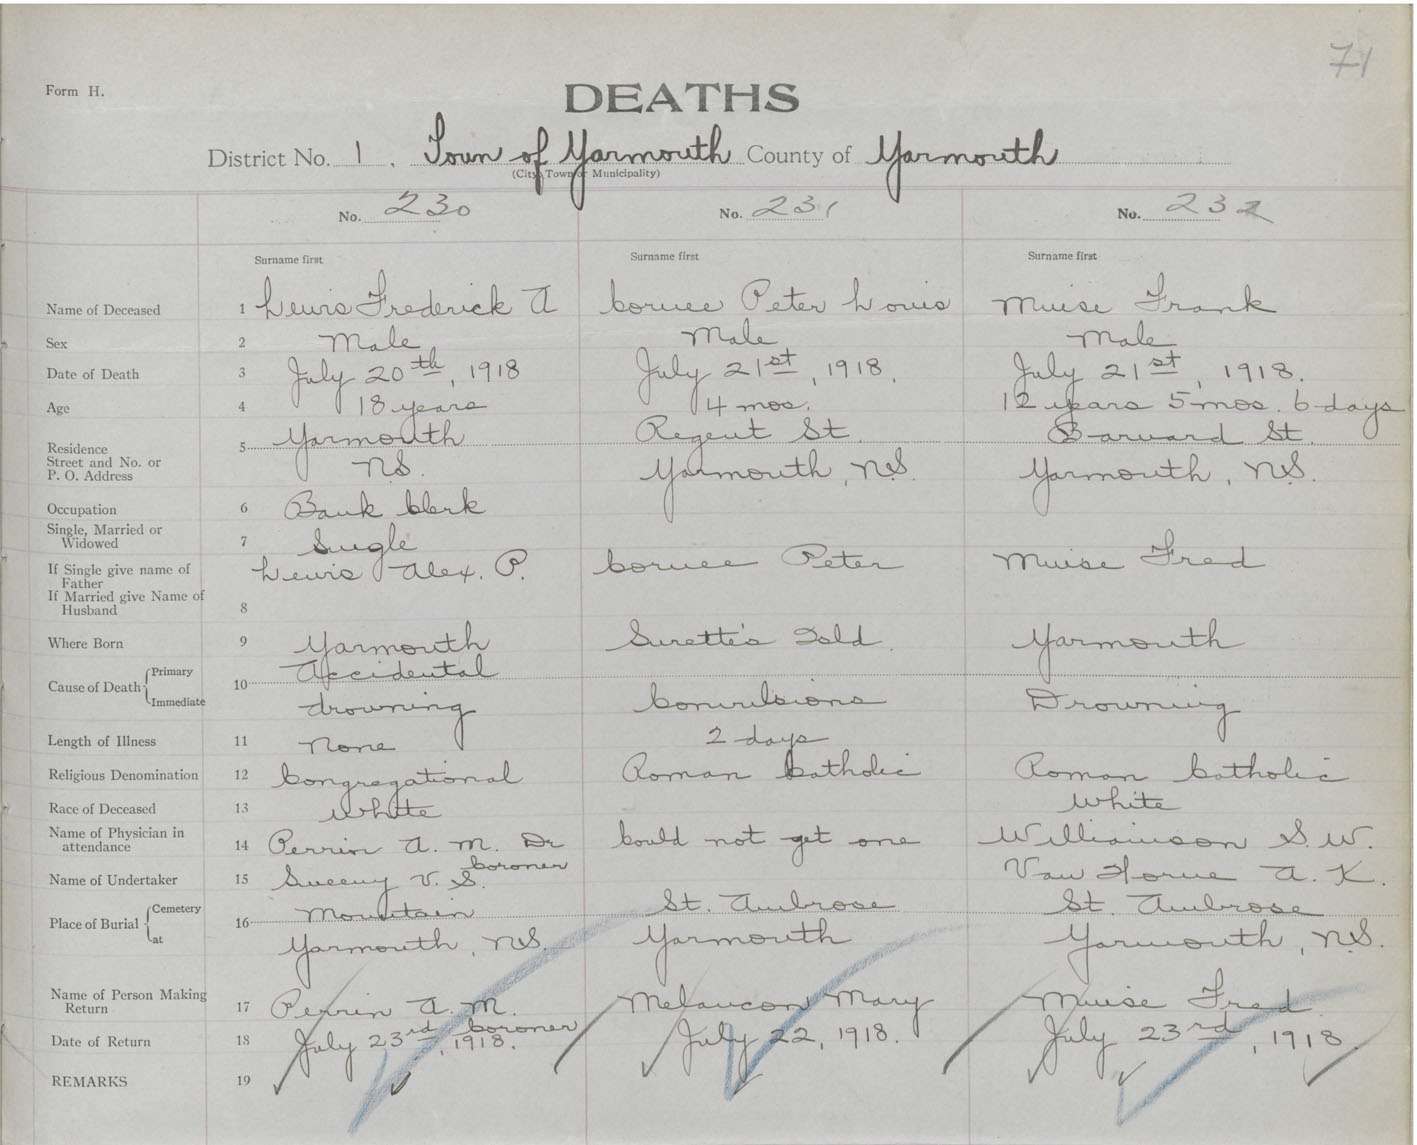 71
Form H.
DEATHS
District No. 1. Town of Yarmouth County of Yarmouth
(City, Town or Municipality)
No. 230 No. 231 No. 232
Surname first Surname first Surname first
Name of Deceased 1 Lewis Frederick A Corucee Peter Louis Muise Frank
Sex 2 Male Male Male
Date of Death 3 July 20th, 1918 July 21st, 1918. July 21st, 1918.
Age 4 18 years 4 mos. 12 years 5 mos. 6 days
Residence 5 Yarmouth Regent St. Barnard St.
Street and No. or
P. O. Address N.S. Yarmouth, N.S. Yarmouth, N.S.
Occupation 6 Bank Clerk
Single, Married or
Widowed 7 Single
If Single give name of
Father Lewis Alex. P. Corucee Peter Muise Fred
If Married give Name of
Husband 8
Where Born 9 Yarmouth Surette's Isld. Yarmouth
Cause of Death Primary 10 Accidental
Immediate drowning Convulsions Drowning
Length of Illness 11 None 2 days
Religious Denomination 12 Congregational Roman Catholic Roman Catholic
Race of Deceased 13 White White
Name of Physician in
attendance 14 Perrin A. M. Dr Coroner Could not get one Williamson S. W.
Name of Undertaker 15 Sweeny V. S. Van Horne A. K.
Place of Burial Cemetery 16 Mountain St. Ambrose St. Ambrose
at Yarmouth, N.S. Yarmouth Yarmouth, N.S.
Name of Person Making
Return 17 Perrin A. M. Coroner Melancon Mary Muise Fred
Date of Return 18 July 23rd, 1918. July 22, 1918. July 23rd, 1918
REMARKS 19